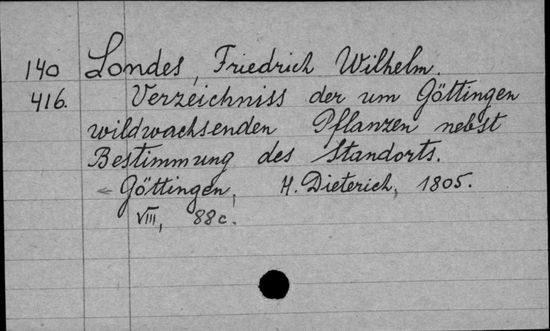 140 Londes, Friedrich Wilhelm.
416. Verzeichniss der um Göttingen
wildwachsenden Pflanzen nebst
Bestimmung des Standorts.
Göttingen, H. Dieterich, 1805.
VIII, 88 c.